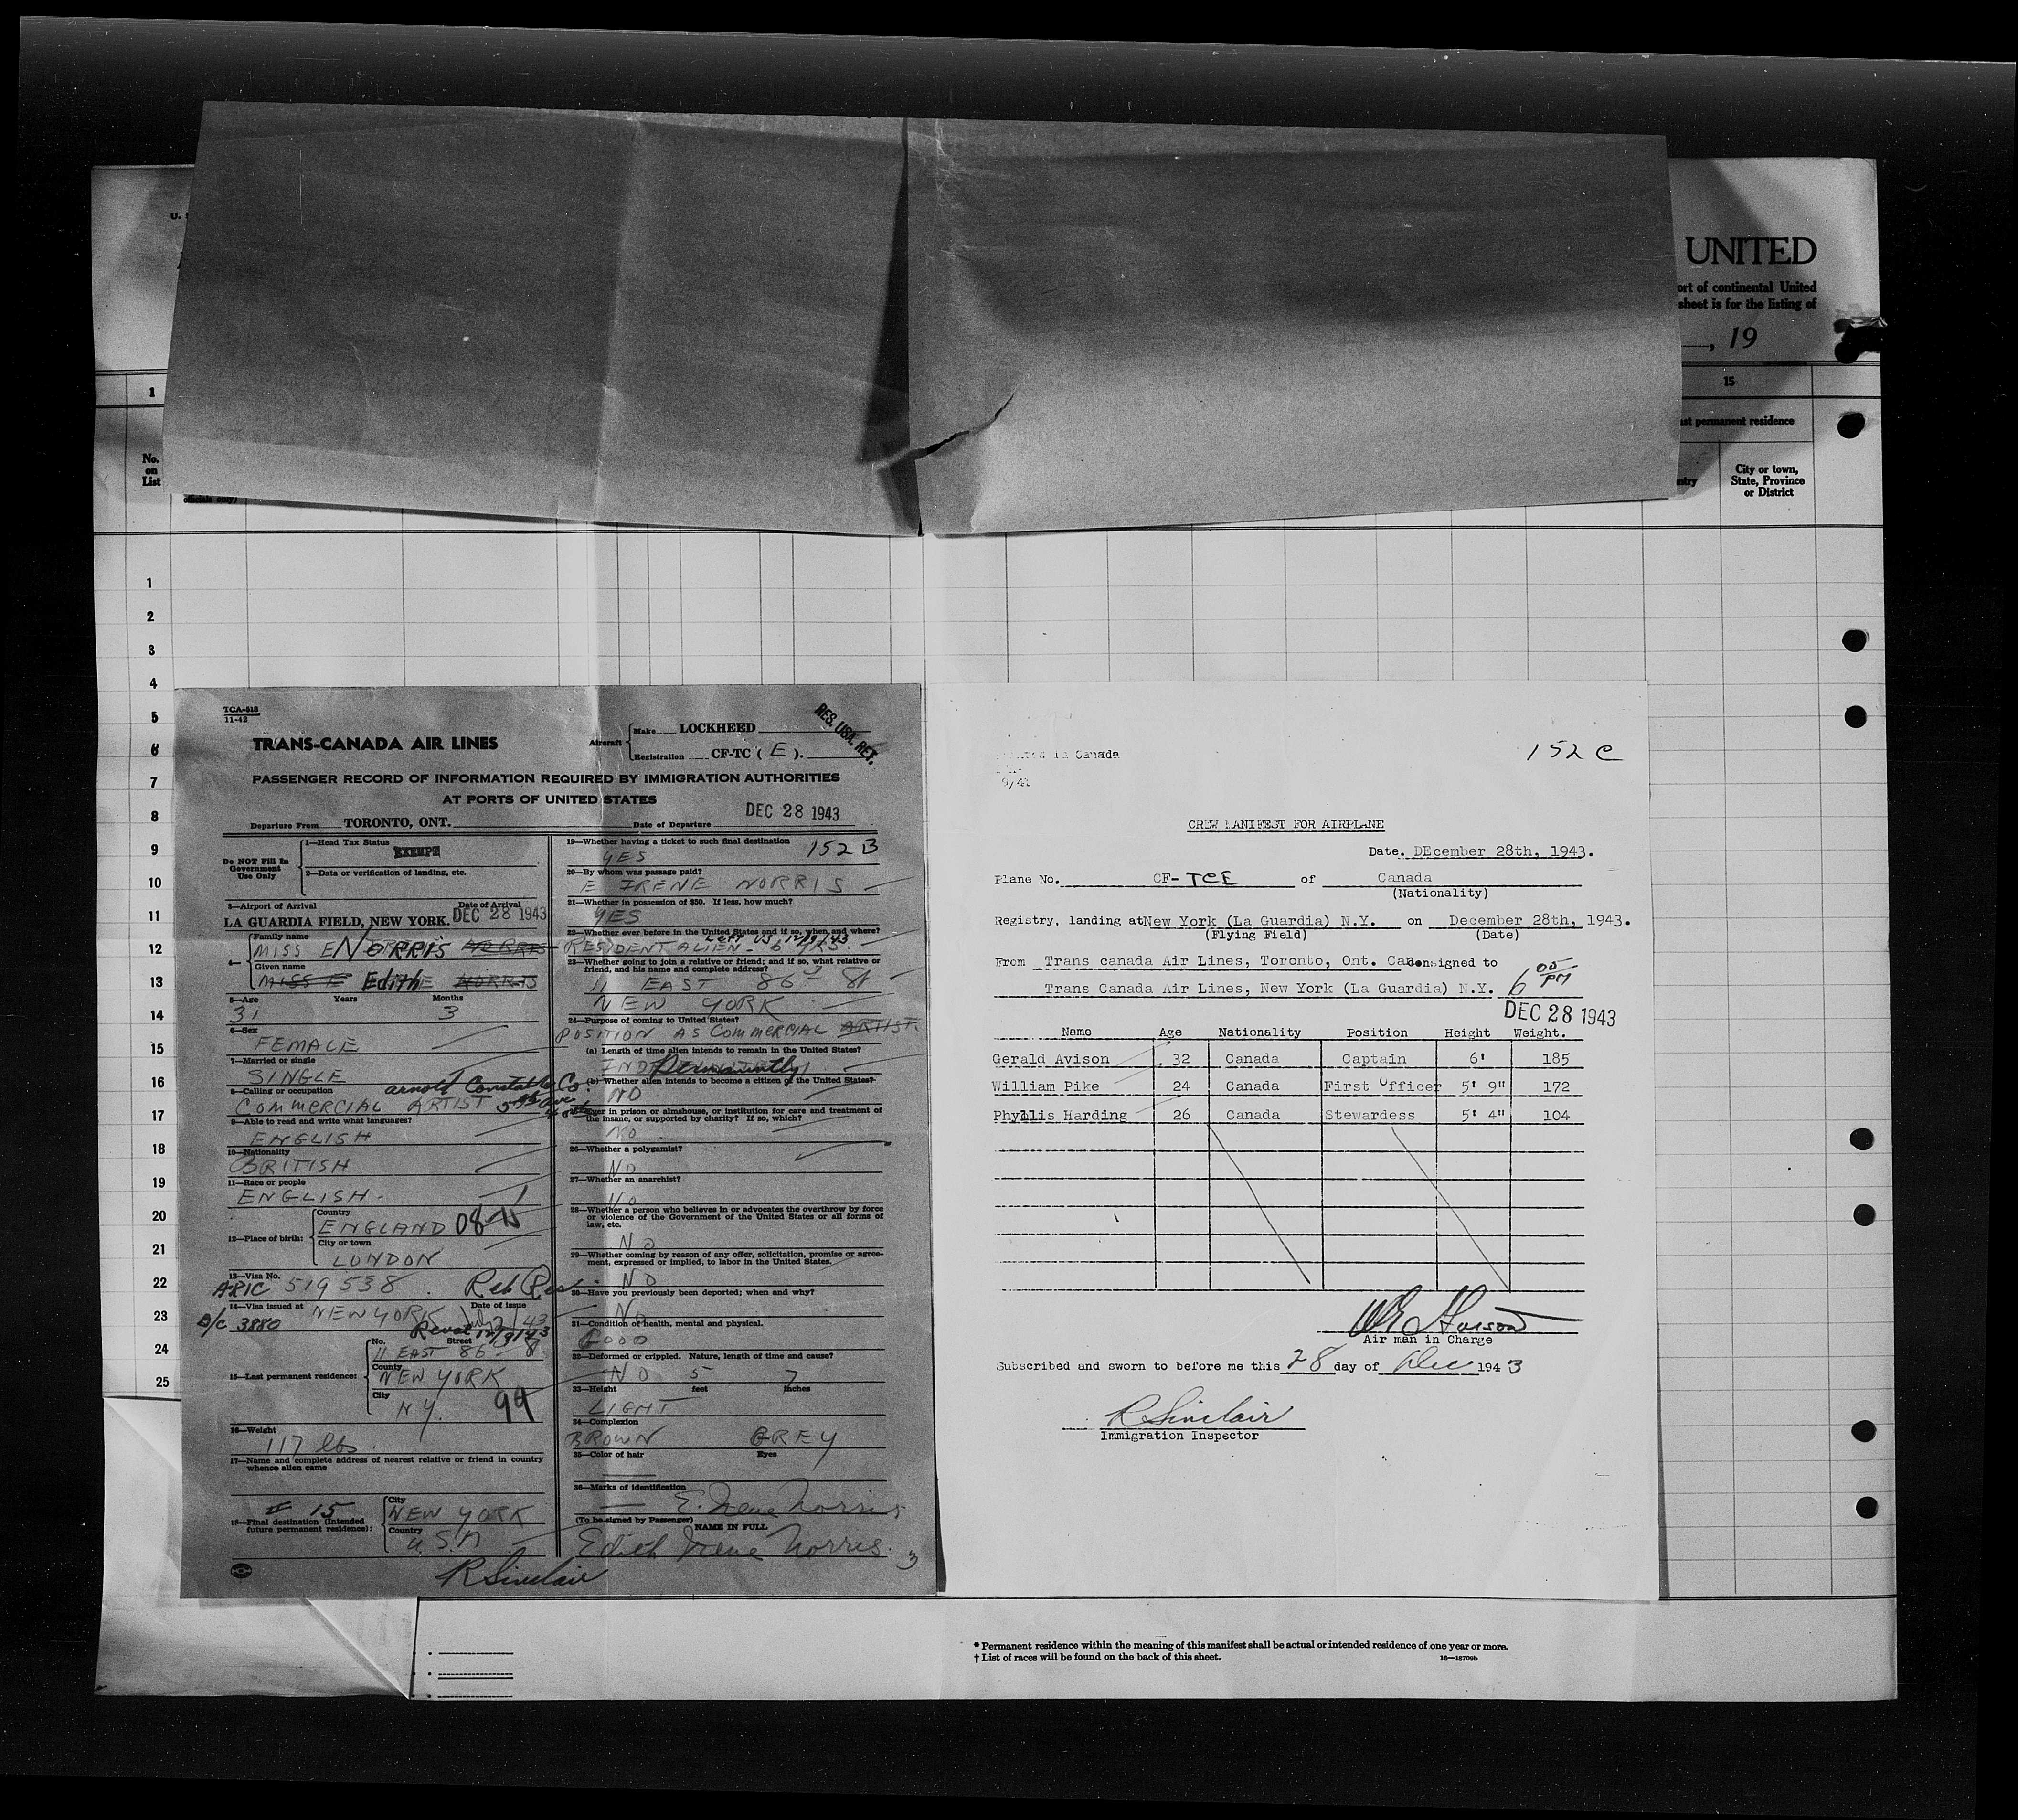 U.
UNITED
ort of continental United
sheet is for the listing of
, 19
1
15
st permanent residence
No.
on
List
City or town,
State, Province
or District
officials only)
1
2
3
4
5
6
7
8
9
10
11
12
13
14
15
16
17
18
19
20
21
22
23
24
25
TCA-518
11-42
TRANS-CANADA AIR LINES
Aircraft
Make LOCKHEED
Registration CF-TC ( E ).
RES. USA. RET.
PASSENGER RECORD OF INFORMATION REQUIRED BY IMMIGRATION AUTHORITIES
AT PORTS OF UNITED STATES
DEC 28 1943
Departure From TORONTO, ONT. Date of Departure
Do NOT Fill In
Government
Use Only
1—Head Tax Status
EXEMPT
2—Data or verification of landing, etc.
3—Airport of Arrival Date of Arrival
LA GUARDIA FIELD, NEW YORK. DEC 28 1943
Family name
MISS E NORRIS
4—
Given name
MISS E Edith E NORRIS
5—Age Years Months
31 3
6—Sex
FEMALE
7—Married or single
SINGLE
8—Calling or occupation Arnold Constable Co.
COMMERCIAL ARTIST 5th Ave
9—Able to read and write what languages?
ENGLISH
10—Nationality
BRITISH
11—Race or people
ENGLISH
12—Place of birth:
Country
ENGLAND
City or town
LONDON
13—Visa No.
ARIC 519538 Reb Res
14—Visa issued at NEW YORK Date of issue
B/C 3880
No. Street
11 EAST 86
15—Last permanent residence:
County
NEW YORK
City
N.Y. 99
16—Weight
117 lbs.
17—Name and complete address of nearest relative or friend in country
whence alien came
# 15
18—Final destination (Intended
future permanent residence):
City
NEW YORK
Country
U.S.A
R Sinclair
19—Whether having a ticket to such final destination
YES 152 B
20—By whom was passage paid?
E IRENE NORRIS
21—Whether in possession of $50. If less, how much?
YES
22—Whether ever before in the United States and if so, when and where?
Left US 12/19/43
RESIDENT ALIEN - 6 YRS.
23—Whether going to join a relative or friend; and if so, what relative or
friend, and his name and complete address?
11 EAST 86 St
NEW YORK
24—Purpose of coming to United States?
POSITION AS COMMERCIAL ARTIST.
(a) Length of time alien intends to remain in the United States?
Permanently
(b) Whether alien intends to become a citizen of the United States?
NO
ever in prison or almshouse, or institution for care and treatment of
the insane, or supported by charity? If so, which?
NO
26—Whether a polygamist?
NO
27—Whether an anarchist?
NO
28—Whether a person who believes in or advocates the overthrow by force
or violence of the Government of the United States or all forms of
law, etc.
NO
29—Whether coming by reason of any offer, solicitation, promise or agree-
ment, expressed or implied, to labor in the United States.
NO
30—Have you previously been deported; when and why?
NO
31—Condition of health, mental and physical.
GOOD
32—Deformed or crippled. Nature, length of time and cause?
NO 5 7
33—Height feet inches
LIGHT
34—Complexion
BROWN GREY
35—Color of hair Eyes
36—Marks of identification
E. Irene Norris
(To be signed by Passenger)
NAME IN FULL
Edith Irene Norris. 3
in Canada
9/41
152 C
CREW MANIFEST FOR AIRPLANE
Date. DEcember 28th, 1943.
Plane No. CF-TCE of Canada
(Nationality)
Registry, landing at New York (La Guardia) N.Y. on December 28th, 1943.
(Flying Field) (Date)
From Trans canada Air Lines, Toronto, Ont. Can Consigned to
Trans Canada Air Lines, New York (La Guardia) N.Y. 6 05 PM
DEC 28 1943
Name Age Nationality Position Height Weight.
Gerald Avison 32 Canada Captain 6' 185
William Pike 24 Canada First Officer 5' 9" 172
Phyllis Harding 26 Canada Stewardess 5' 4" 104
Air man in Charge
Subscribed and sworn to before me this 28 day of Dec 1943
R Sinclair
Immigration Inspector
* Permanent residence within the meaning of this manifest shall be actual or intended residence of one year or more.
† List of races will be found on the back of this sheet. 16—18709b